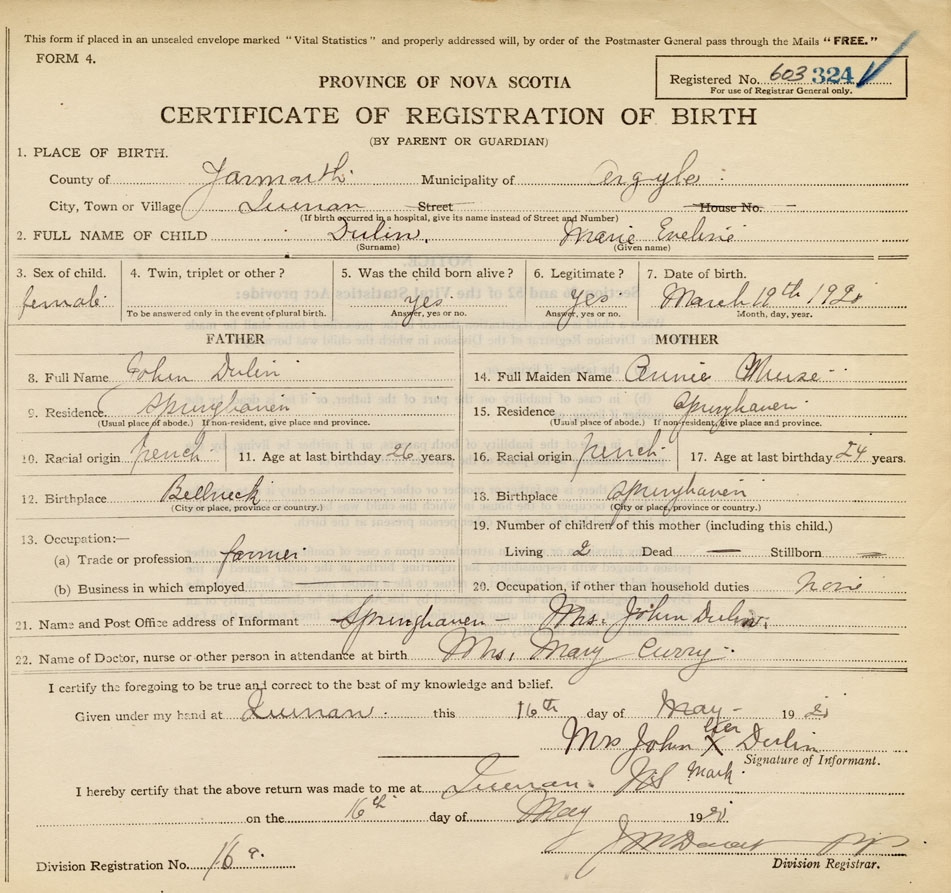 This form if placed in an unsealed envelope marked "Vital Statistics" and properly addressed will, by order of the Postmaster General pass through the Mails "FREE."
FORM 4.
Registered No. 603 324
For use of Registrar General only.
PROVINCE OF NOVA SCOTIA
CERTIFICATE OF REGISTRATION OF BIRTH
(BY PARENT OR GUARDIAN)
1. PLACE OF BIRTH.
County of Yarmouth Municipality of Argyle
City, Town or Village Quinan Street House No. —
(If birth occurred in a hospital, give its name instead of Street and Number)
2. FULL NAME OF CHILD Dulin, Marie Eveline
(Surname) (Given name)
3. Sex of child. 4. Twin, triplet or other? 5. Was the child born alive? 6. Legitimate? 7. Date of birth.
female yes yes March 19th 192
To be answered only in the event of plural birth. Answer, yes or no. Answer, yes or no. Month, day, year.
FATHER
8. Full Name John Dulin
9. Residence Springhaven
(Usual place of abode.) If non-resident, give place and province.
10. Racial origin french 11. Age at last birthday 26 years.
12. Birthplace Bellneck
(City or place, province or country.)
13. Occupation:—
(a) Trade or profession farmer
(b) Business in which employed
MOTHER
14. Full Maiden Name Annie Muise
15. Residence Springhaven
(Usual place of abode.) If non-resident, give place and province.
16. Racial origin french 17. Age at last birthday 24 years.
18. Birthplace Springhaven
(City or place, province or country.)
19. Number of children of this mother (including this child.)
Living 2 Dead — Stillborn —
20. Occupation, if other than household duties none
21. Name and Post Office address of Informant Springhaven — Mrs. John Dulin.
22. Name of Doctor, nurse or other person in attendance at birth Mrs. Mary Curry
I certify the foregoing to be true and correct to the best of my knowledge and belief.
Given under my hand at Quinan this 16th day of May 19
her
Mrs John X Dulin
Signature of Informant.
Mark
I hereby certify that the above return was made to me at Quinan
on the 16th day of May 19
Division Registration No. 16
Division Registrar.